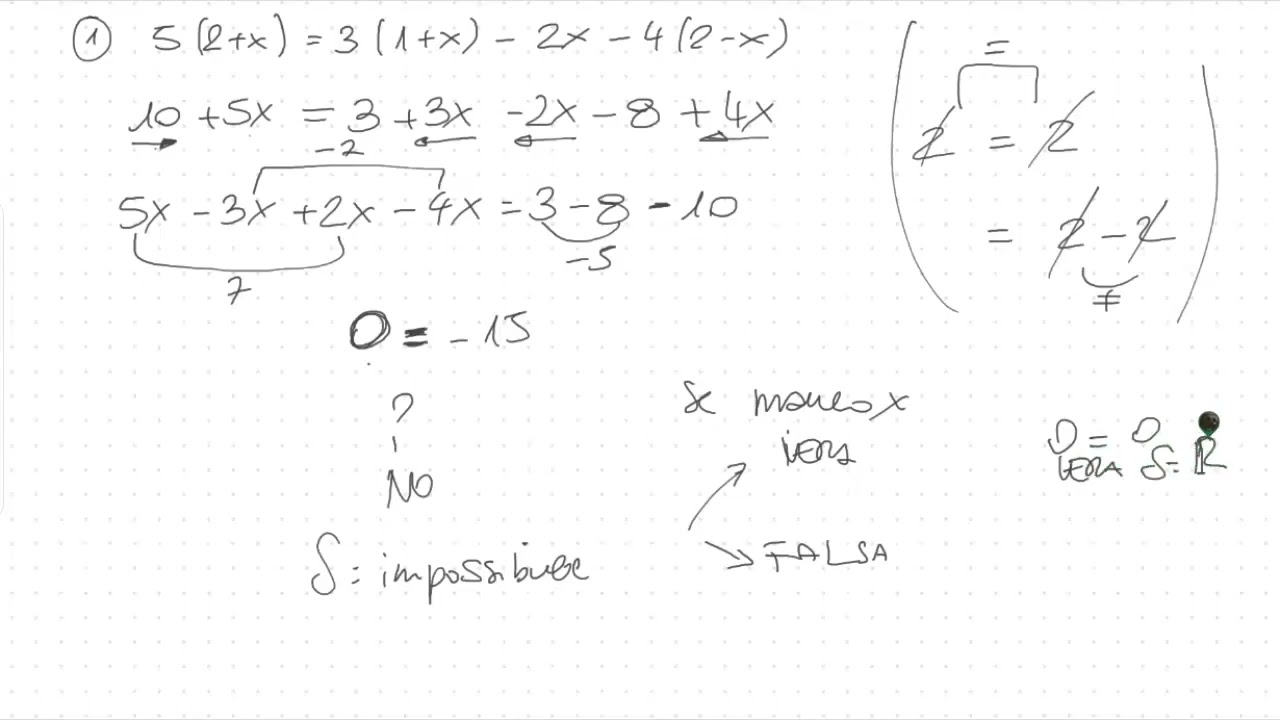 ① 5(2+x) = 3(1+x) - 2x - 4(2-x)
10 +5x = 3 +3x -2x - 8 +4x
-2
5x - 3x +2x - 4x = 3 - 8 - 10
7
-5
0 = -15
?
NO
S = impossibile
=
2 = 2
= 2 - 2
≠
Se manca x
VERA
FALSA
0 = 0
VERA S = R